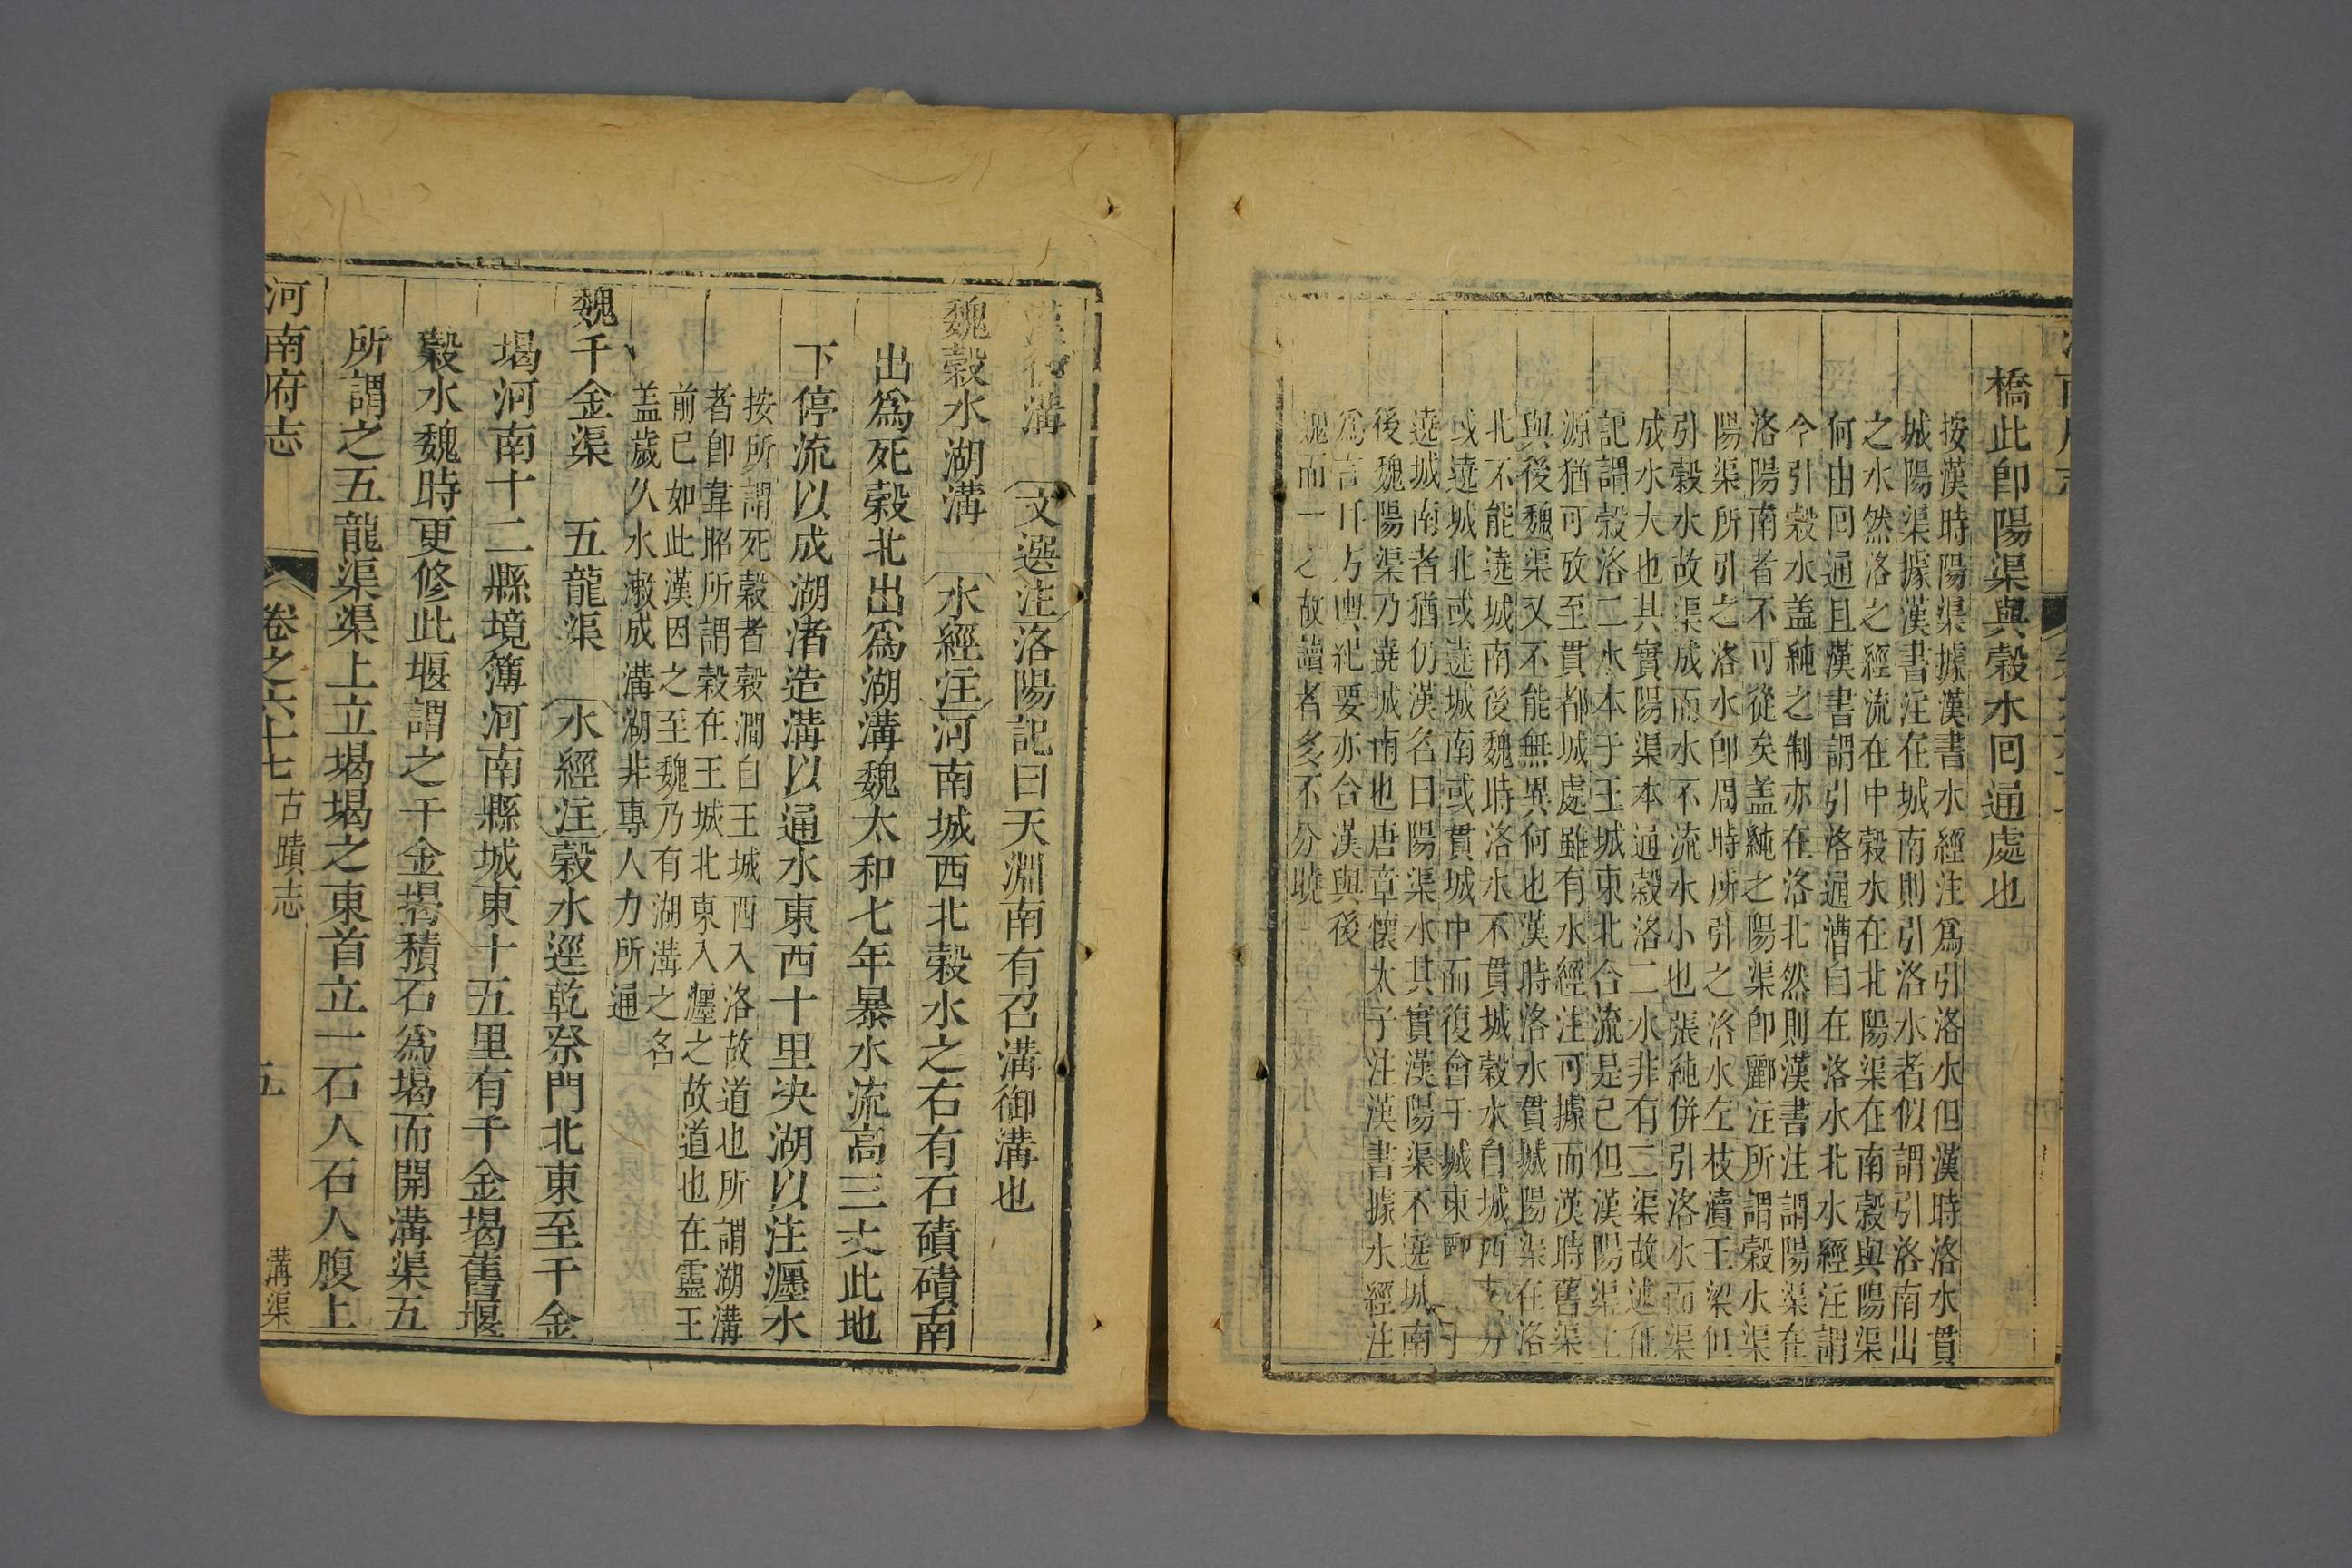 橋此卽陽渠與穀水回通處也
按漢時陽渠據漢書水經注爲引洛水但漢時洛水貫
城陽渠據漢書注在城南則引洛水者似謂引洛南出
之水然洛之經流在中穀水在北陽渠在南穀與陽渠
何由回通且漢書謂引洛通漕自在洛水北水經注謂
今引穀水盖純之制亦在洛北然則漢書注謂陽渠在
洛陽南者不可從矣盖純之陽渠卽酈注所謂穀水渠
陽渠所引之洛水卽周時所引之洛水左枝瀆王梁但
引穀水故渠成而水不流水小也張純併引洛水而渠
成水大也其實陽渠本通穀洛二水非有二渠故述征
記謂穀洛二水本于王城東北合流是已但漢陽渠上
源猶可攷至貫都城處雖有水經注可據而漢時舊渠
與後魏渠又不能無異何也漢時洛水貫城陽渠在洛
北不能遶城南後魏時洛水不貫城穀水自城西支分
或遶城北或遶城南或貫城中而復會于城東
遶城南者猶仍漢名曰陽渠水其實漢陽渠不遶城南
後魏陽渠乃遶城南也唐章懷太子注漢書據水經注
爲言紀要亦合漢與後
魏而一之故讀者多不分曉
溝〔文選注〕洛陽記曰天淵南有召溝御溝也
魏穀水湖溝〔水經注〕河南城西北穀水之右有石磧磧南
出爲死穀北出爲湖溝魏太和七年暴水流高三丈此地
下停流以成湖渚造溝以通水東西十里決湖以注瀍水
按所謂死穀者穀澗自王城西入洛故道也所謂湖溝
者卽韋昭所謂穀在王城北東入瀍之故道也在靈王
前已如此漢因之至魏乃有湖溝之名
盖歲久水漱成溝湖非專人力所通
魏千金渠　五龍渠〔水經注〕穀水逕乾祭門北東至千金
堨河南十二縣境簿河南縣城東十五里有千金堨舊堰
穀水魏時更修此堰謂之千金堨積石爲堨而開溝渠五
所謂之五龍渠渠上立堨堨之東首立一石人石人腹上
河南府志　卷之六十七　古蹟志　五　溝渠